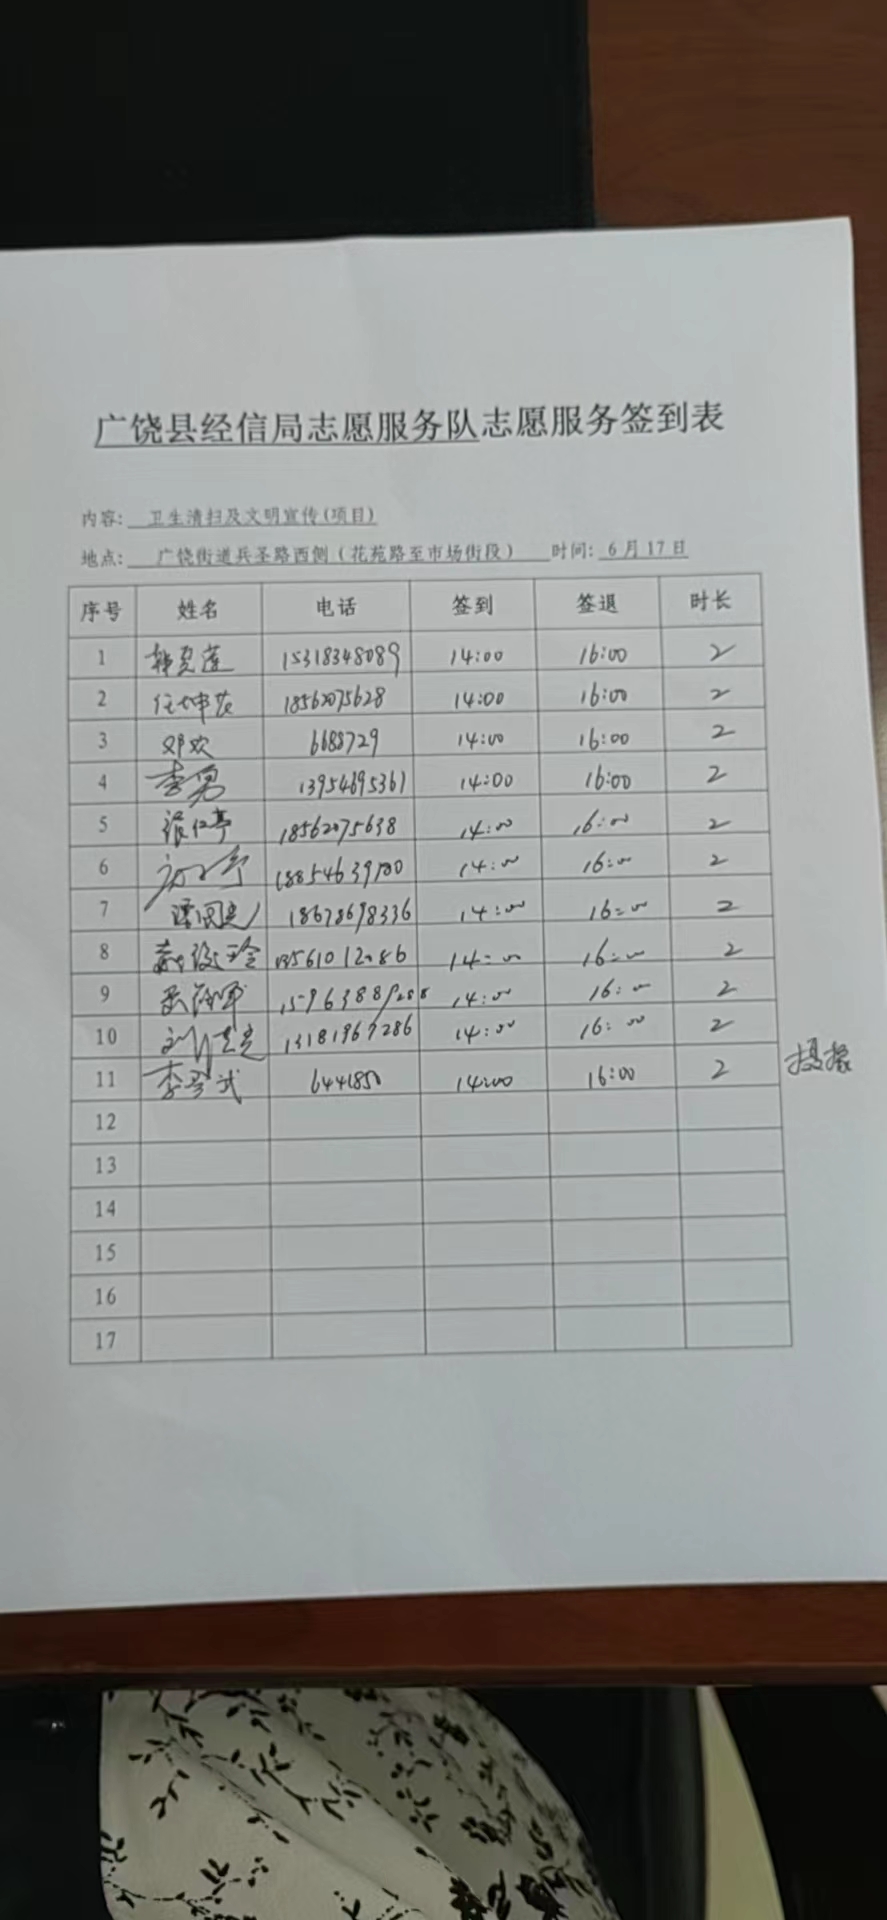 广饶县经信局志愿服务队志愿服务签到表
内容: 卫生清扫及文明宣传(项目)
地点: 广饶街道兵圣路西侧(花苑路至市场街段) 时间: 6月17日
序号 姓名 电话 签到 签退 时长
1 15318348089 14:00 16:00 2
2 任坤花 18562075628 14:00 16:00 2
3 邓欢 6688729 14:00 16:00 2
4 李勇 13954695361 14:00 16:00 2
5 张仁亭 18562075638 14:00 16:00 2
6 14:00 16:00 2
7 18678698336 14:00 16:00 2
8 13561012086 14:00 16:00 2
9 14:00 16:00 2
10 13181967286 14:00 16:00 2
11 6441850 14:00 16:00 2 摄像
12
13
14
15
16
17